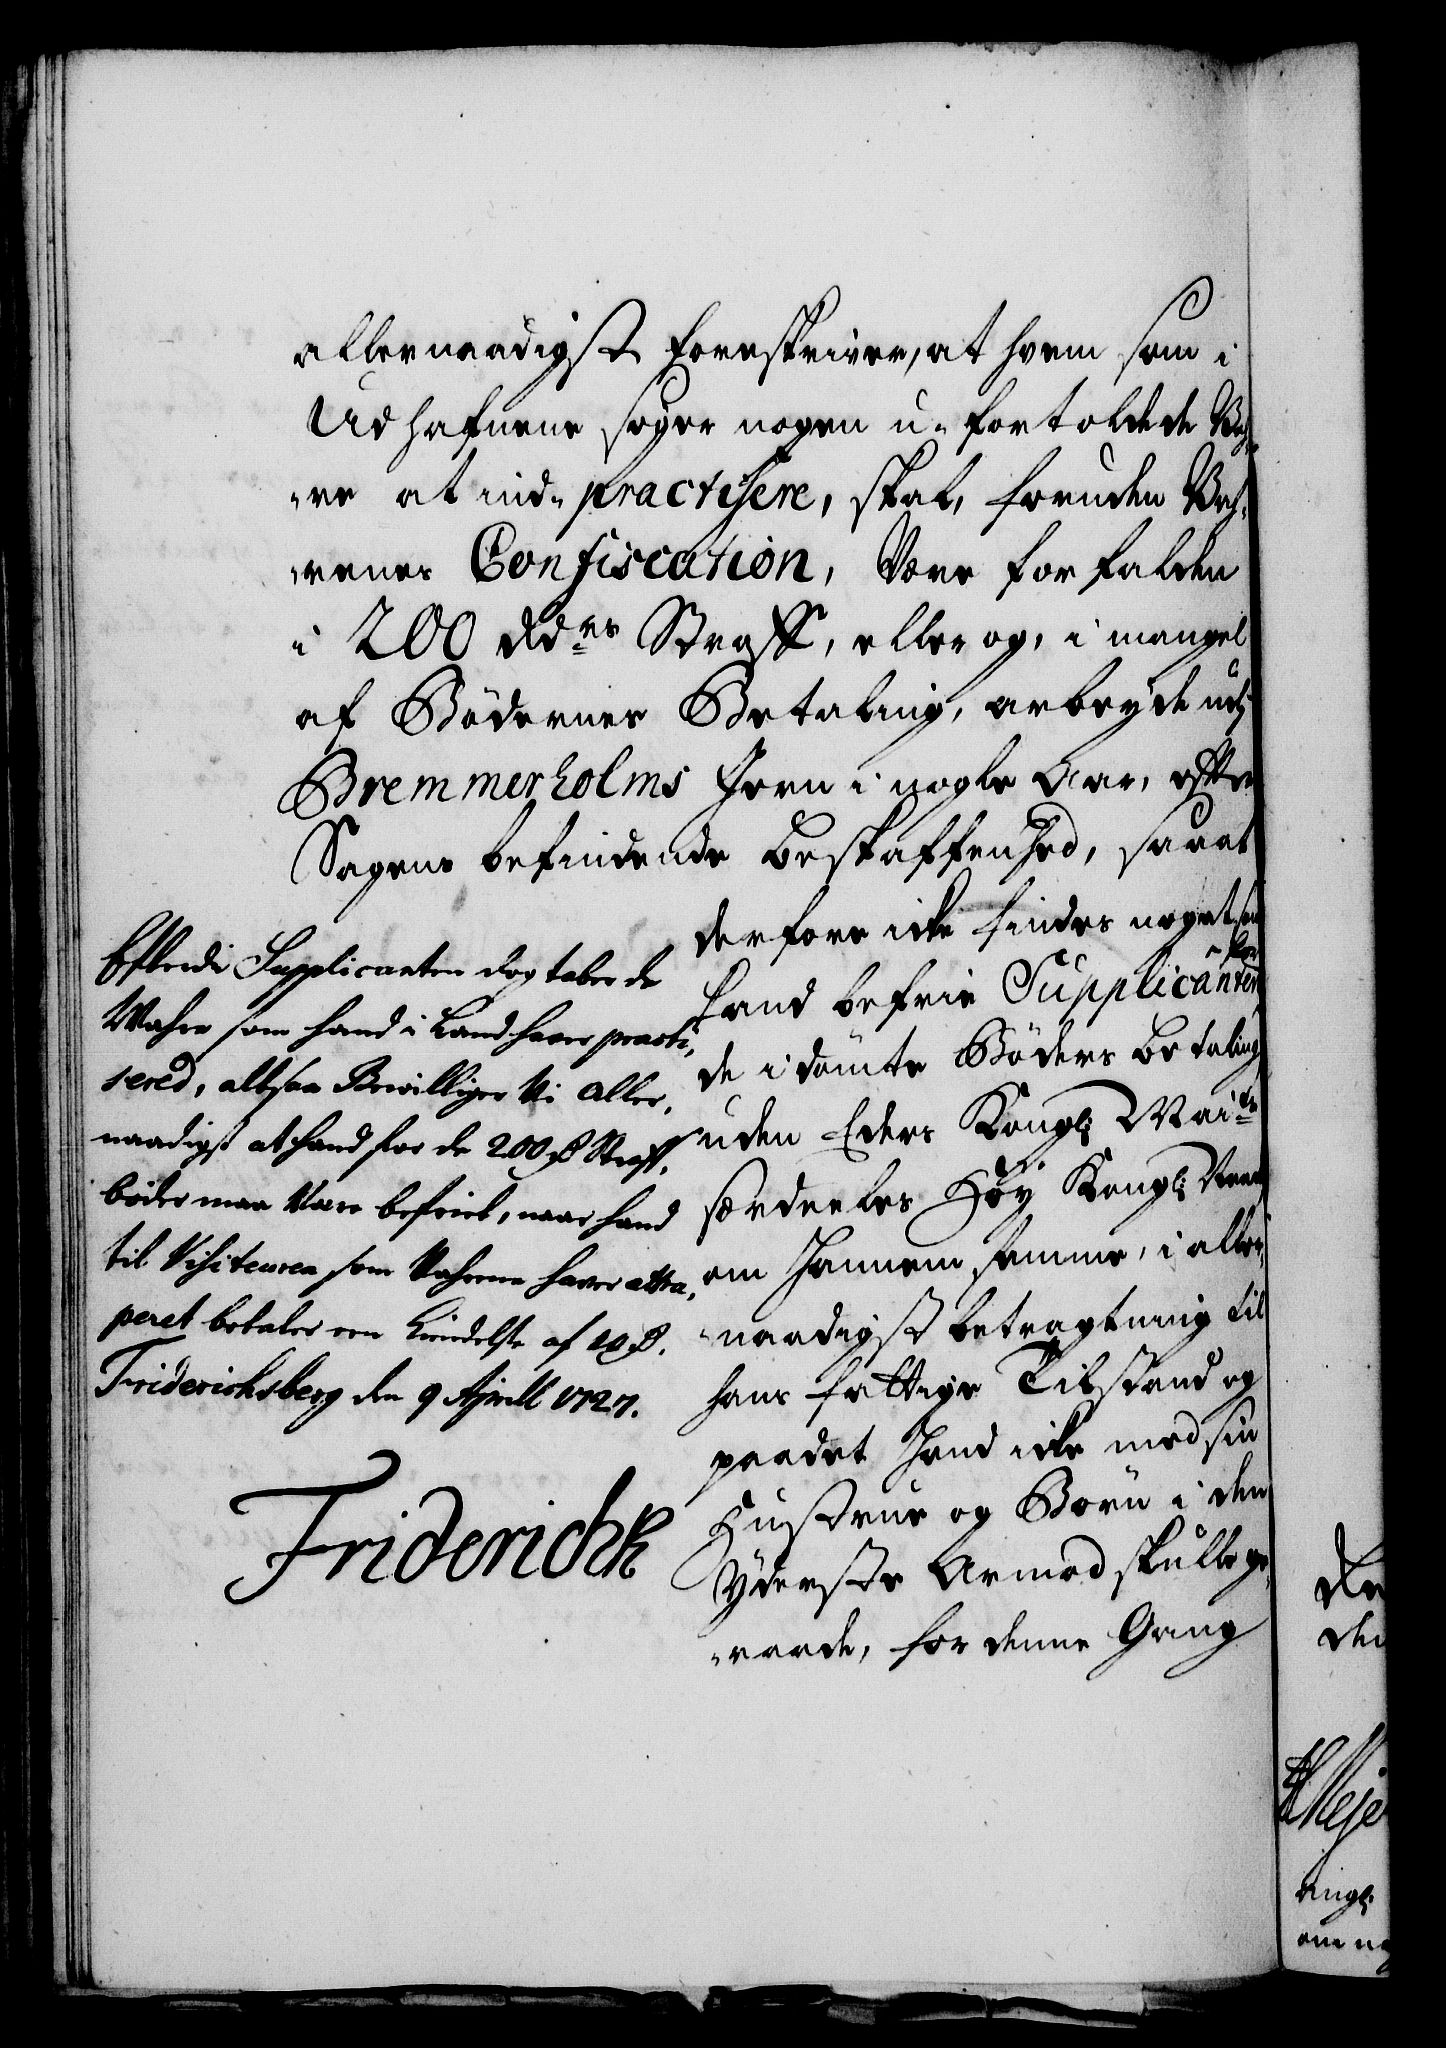 allernaadigst foreskriver, at hvem som i
Udhafnene søger nogen u-fortoldede Vah-
-re at ind-practisere, skal, foruden Vah-
-renes Confiscation, Være forfalden
i 200 Rdrs Straff, eller og, i mangel
af Bödernes Betaling, arbeyde udj
Bremmerholms Jern i nogle Aar, efter
Sagens befindende beskaffenhed, saa at
derfore icke findes noget som
kand befrie Supplicanten for
de idömte Böders betaling
uden Eders Kongl: Mai:ts
særdeeles Höy Kongl: Naade
om hannem samme, i aller-
-naadigst betragtning til
hans fattige Tilstand og
paa det hand icke med sin
Hustrue og Börn i den
Yderste Armod skulle ge-
-raade, for denne Gang
Efterdi Supplicanten dog taber de
Wahre som hand i Land haver practi-
sered, altsaa Bewilliger Vi aller-
naadigst at hand for de 200 Rd Straff-
böder maa Være befried, naar hand
til Visiteuren som Vahrene haver attra-
peret betaler en Kiendelse af 10 Rd.
Friderichsberg den 9 Aprill 1727.
Friderich R